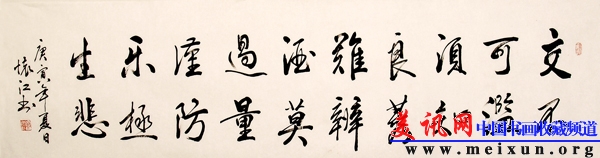 交不
可濫
須知
良莠
難辨
酒莫
過量
謹防
乐極
生悲
庚寅年夏日
懷江书
美讯网
中国书画收藏频道
www.meixun.org